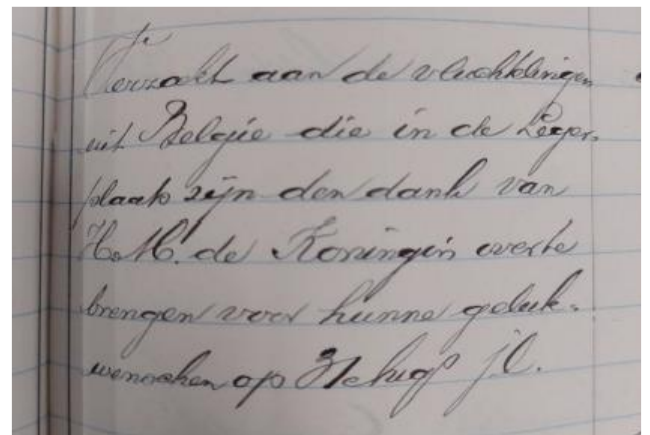 Verzoekt aan de vluchtelingen
uit België die in de Leger-
plaats zijn den dank van
H.M. de Koningin over te
brengen voor hunne geluk-
wenschen op 31 Aug jl.